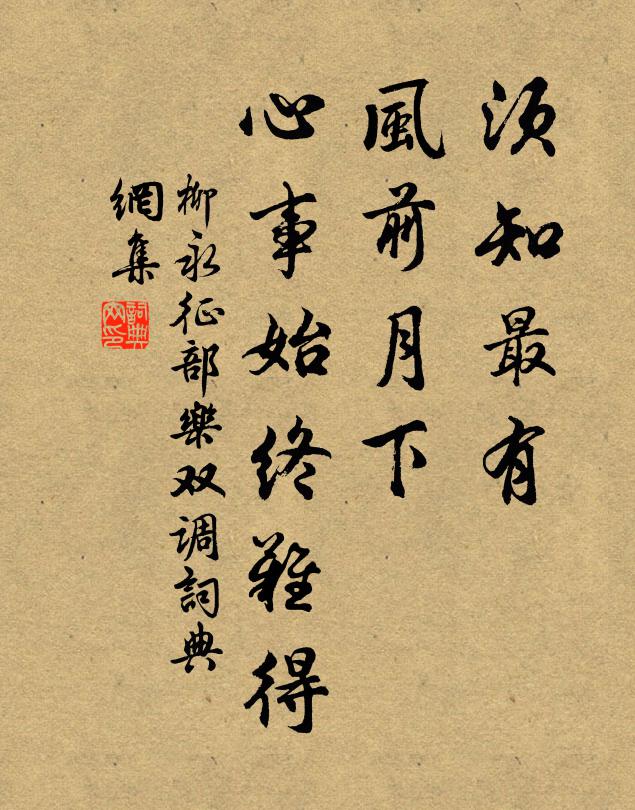 须知最有
風前月下
心事始终難得
柳永征部樂双调詞典
網集
詞典
网印